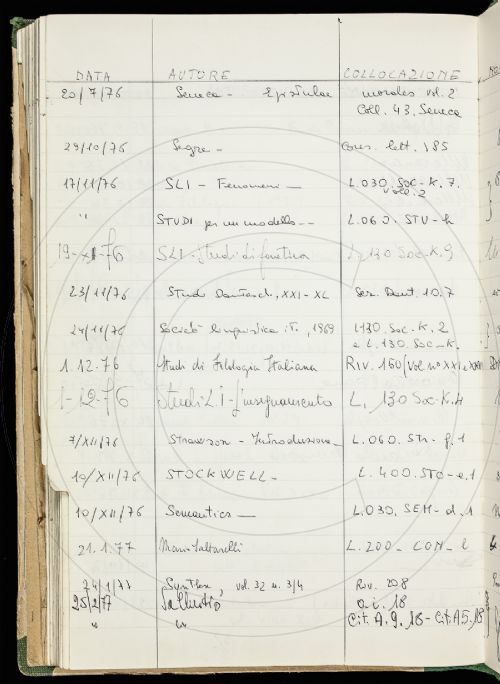 DATA AUTORE COLLOCAZIONE
20/7/76 Seneca - Epistulae morales vol. 2
Coll. 43. Seneca
29/10/76 Segre - Cons. lett. 185
17/11/76 SLI - Fenomeni — L.030. Soc-K.7.
vol. 2
" STUDI per un modello -- L.060. STU-h
19-XI-76 SLI-Studi di fonetica L. 130 Soc.K.9
23/11/76 Studi Danteschi, XXI-XL Sez. Dant. 10.7
24/11/76 Società linguistica it., 1969 L130. Soc-K. 2
e L.130. Soc-K.
1.12.76 Studi di Filologia Italiana RIV. 160/Vol. nº XXI e
1-12-76 Studi L I - L'insegnamento L, 130 Soc-K.4
7/XII/76 Strawson - Introduzione L.060. Str. g.1
10/XII/76 STOCKWELL - L.400. STO-e.1
10/XII/76 Semantics — L.030. SEM-d.1
21.1.77 Mario Saltarelli L.200- CON-l
24/1/77 Synthese, vol. 32 n. 3/4 Riv. 208
25/2/77 Sallustio a.i. 18
" " Cit. A.9.18-Cit.A5.18